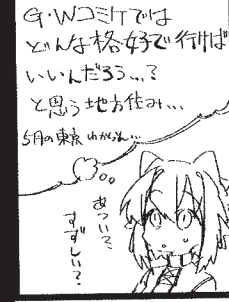 G・Wコミケでは
どんな格好で行けば
いいんだろう…?
と思う地方住み…
5月の東京わからん…
あつい?、
すずしい?